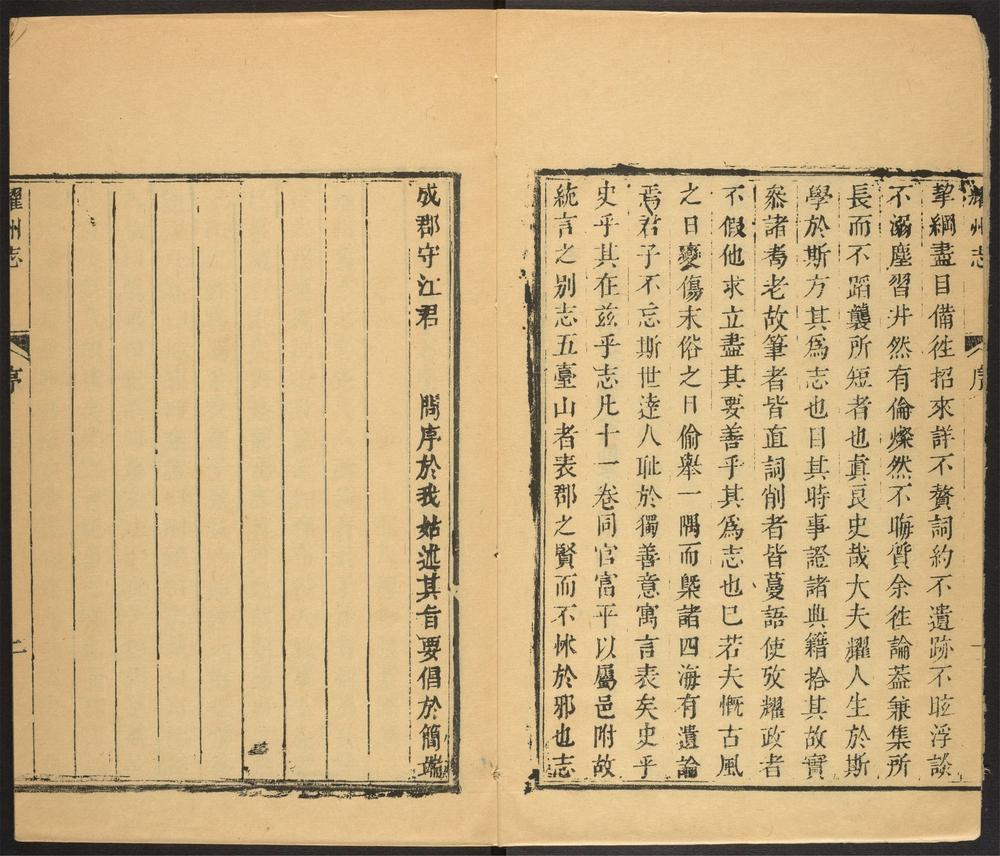 耀州志
序
一
挈綱盡目備徃招來詳不贅詞約不遺跡不眩浮談
不溺塵習井然有倫燦然不晦質余徃論葢兼集所
長而不蹈襲所短者也真良史哉大夫耀人生於斯
學於斯方其爲志也目其時事證諸典籍拾其故實
叅諸耈老故筆者皆直詞削者皆蔓語使攷耀政者
不假他求立盡其要善乎其爲志也巳若夫慨古風
之日變傷末俗之日偷舉一隅而槩諸四海有遺論
焉君子不忘斯世達人耻於獨善意寓言表矣史乎
史乎其在兹乎志凡十一卷同官富平以屬邑附故
統言之别志五臺山者表郡之賢而不怵於邪也志
成郡守江君　問序於我姑述其旨要倡於簡端
耀州志
序
二